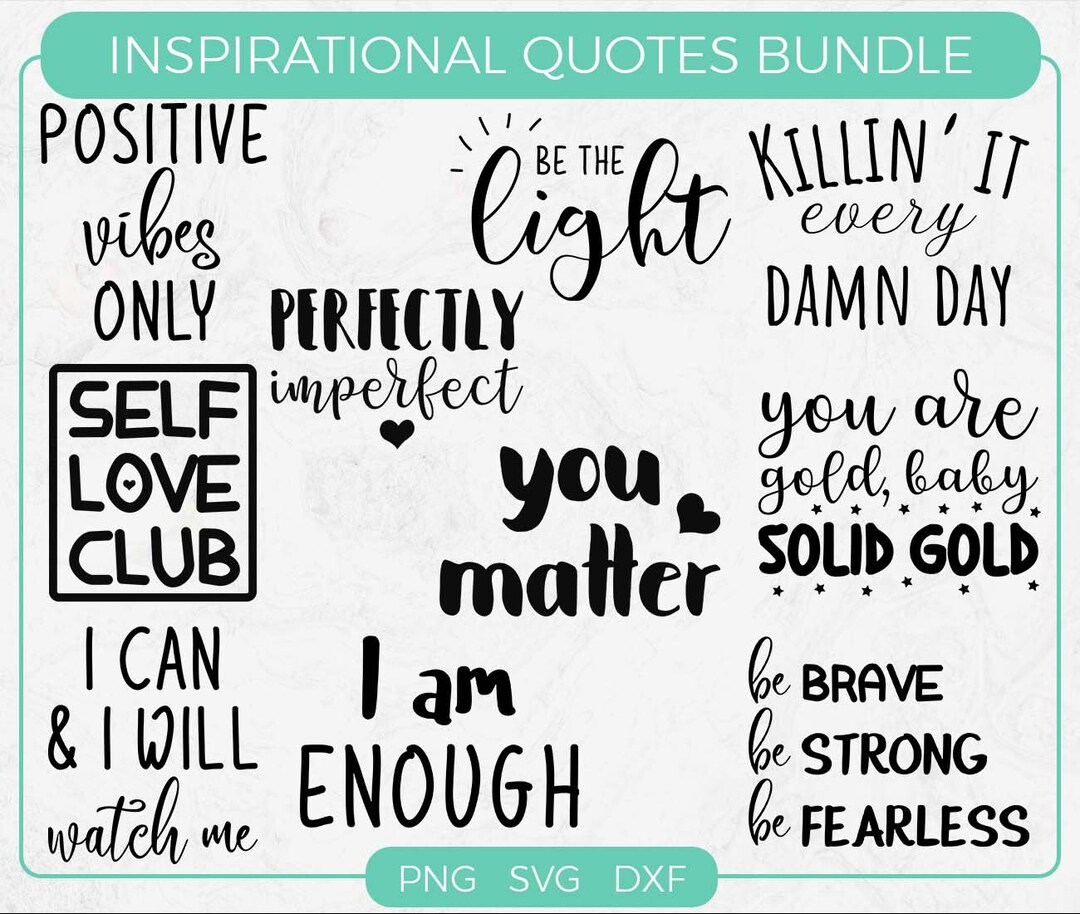 INSPIRATIONAL QUOTES BUNDLE
POSITIVE
vibes
ONLY
BE THE
light
KILLIN' IT
every
DAMN DAY
PERFECTLY
imperfect
SELF
LOVE
CLUB
you
matter
you are
gold, baby
SOLID GOLD
I CAN
& I WILL
watch me
I am
ENOUGH
be BRAVE
be STRONG
be FEARLESS
PNG SVG DXF